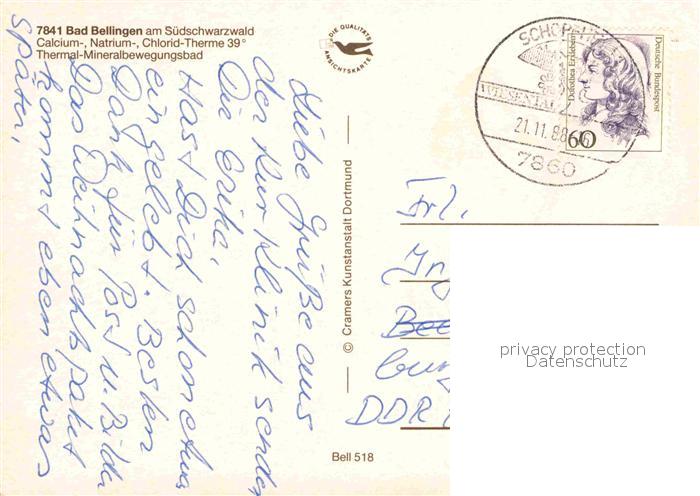 7841 Bad Bellingen am Südschwarzwald
Calcium-, Natrium-, Chlorid-Therme 39°
Thermal-Mineralbewegungsbad
DIE QUALITÄTS
ANSICHTSKARTE
Liebe Grüße aus
der Kur Klinik sendet
Dir Erika.
Hast Dich schon etwas
eingelebt. Besten
Dank für Post u. Bilder
Das Weihnachtspaket
kommt eben etwas
später,
© Cramers Kunstanstalt Dortmund
SCHOPFHEIM
WIESENTAL
21.11.88
7860
Dorothea Erxleben
Deutsche Bundespost
60
Frl.
DDR
privacy protection
Datenschutz
Bell 518